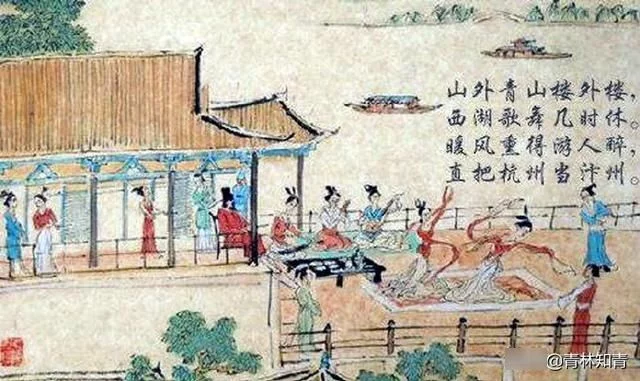 山外青山楼外楼，
西湖歌舞几时休。
暖风熏得游人醉，
直把杭州当汴州。
@青林知青